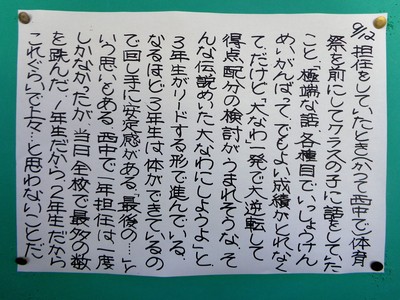 9/12 担任をしていたとき、かつて西中で体育
祭を前にしてクラスの子に話をしていた
こと、「極端な話、各種目でいっしょうけん
めいがんばって、でもよい成績がとれなく
て、だけど、大なわ一発で大逆転して
得点配分の検討がうまれそうな、そ
んな伝説めいた大なわにしようよ」と。
3年生がリードする形で進んでいる。
なるほど3年生は体ができているの
で回し手に安定感がある。最後の…と
いう思いもある。西中で一年担任は一度
しかなかったが、当日全校で最多の数
を跳んだ。1年生だから、2年生だから
これぐらいで上々…と思わないことだ。